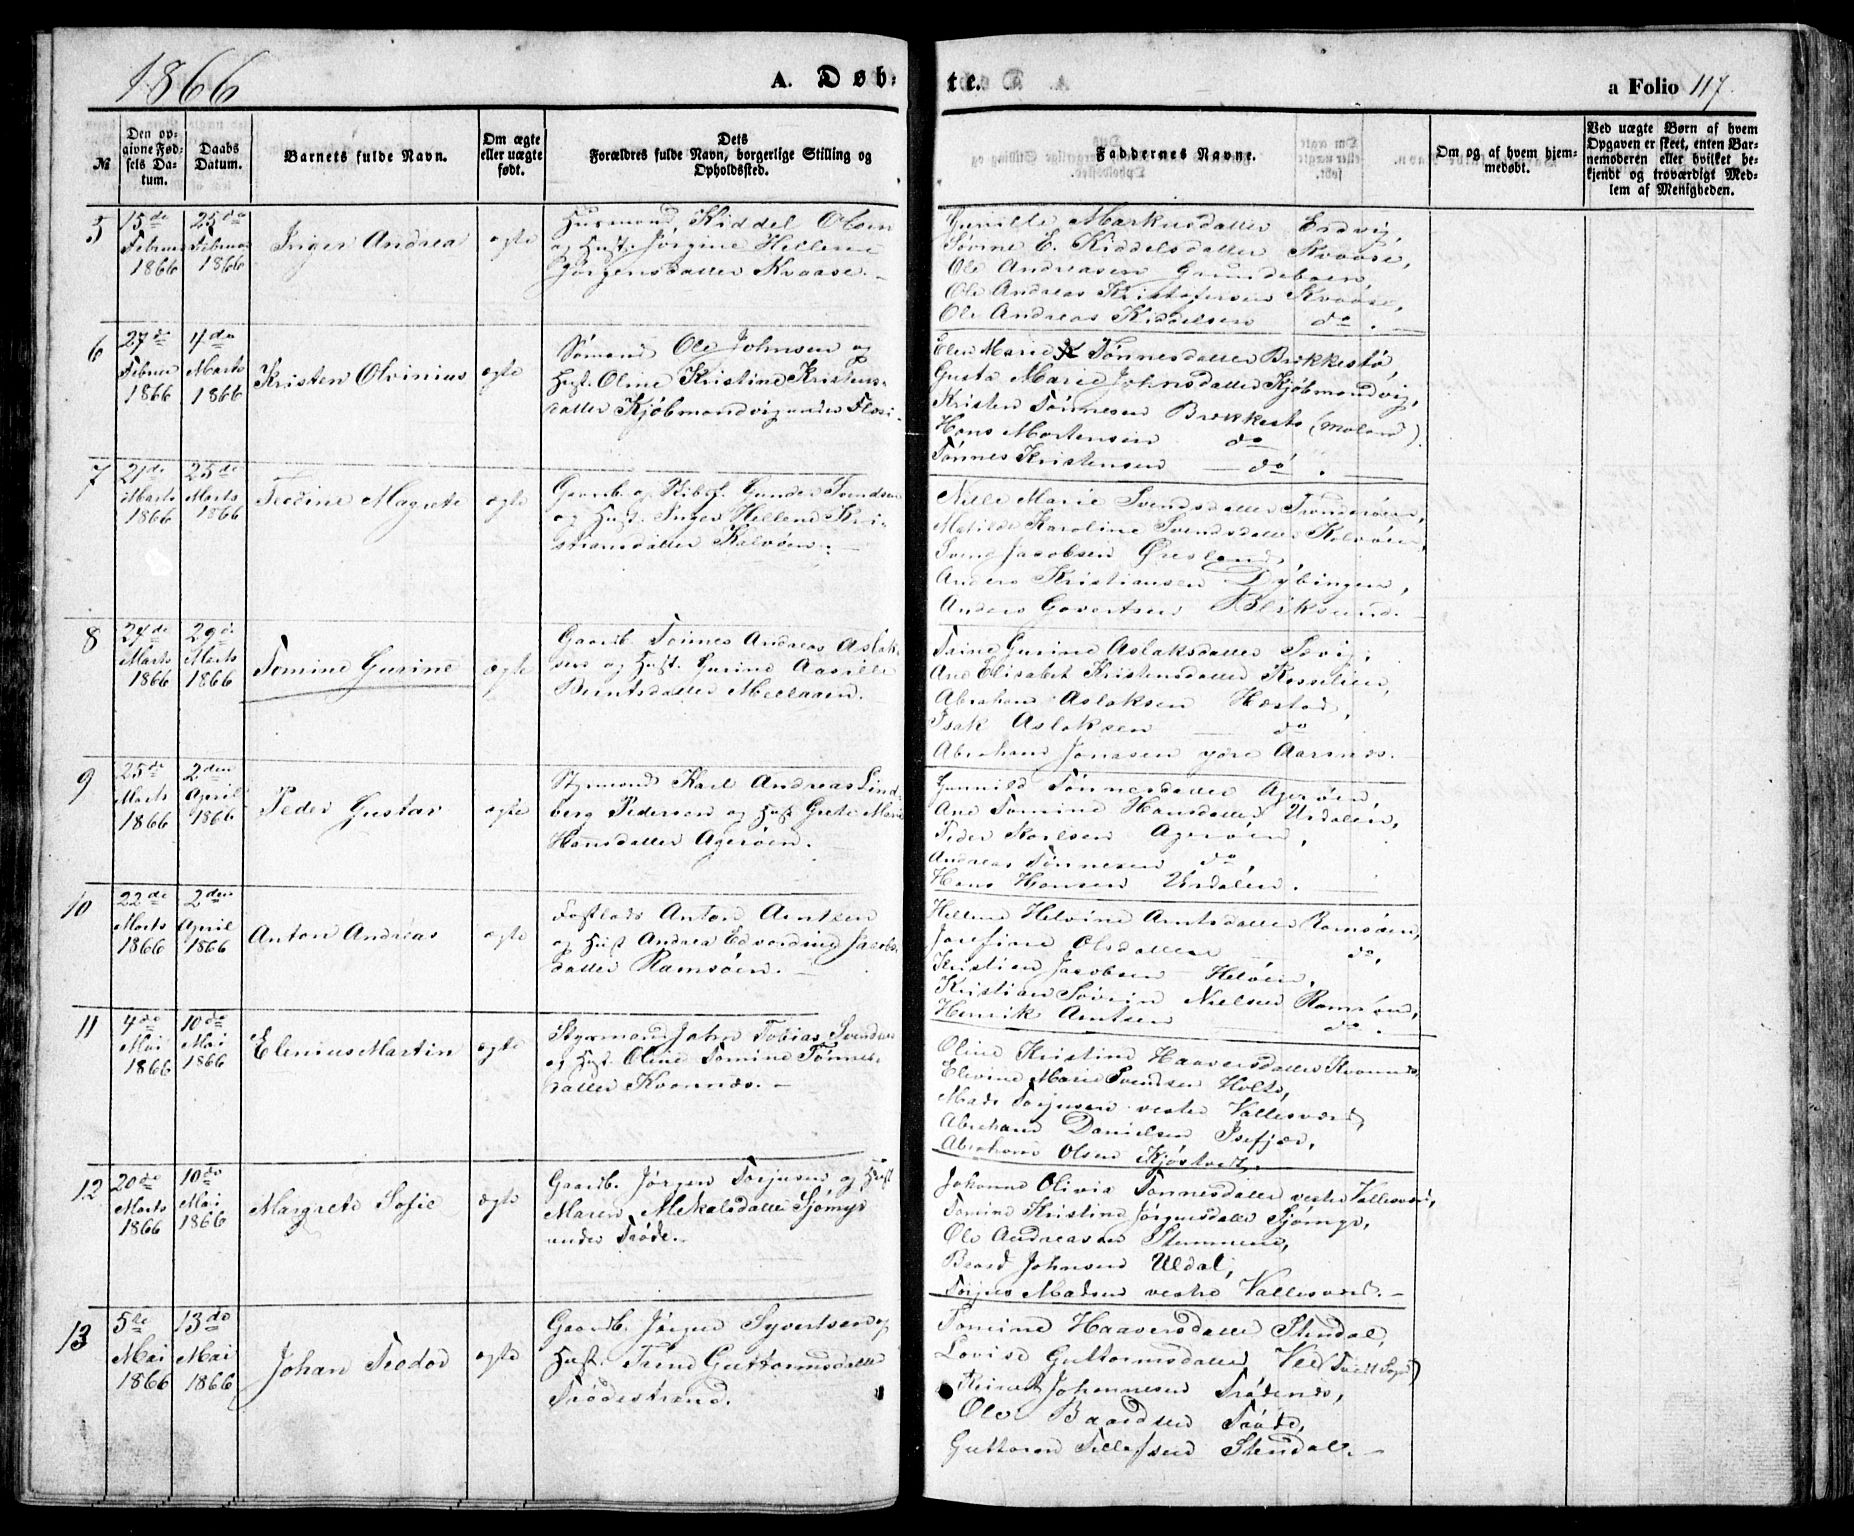 1866
A. Døb=
te.
a Folio 117.
№
Den op=
givne Fød=
sels Da=
tum.
Daabs
Datum.
Barnets fulde Navn.
Om ægte
eller uægte
født.
Dets
Forældres fulde Navn, borgerlige Stilling og
Opholdssted.
Faddernes Navne.
Om og af hvem hjem=
medøbt.
Ved uægte Børn af hvem
Opgaven er skeet, enten Bar=
nemoderen eller hvilket be=
kjendt og troværdigt Med=
lem af Menigheden.
5
15de
Februar
1866
25de
Februar
1866
Inger Andrea
ægte
Husmand, Kiddel Olsen
og Hust. Jørgine Hellene
Jörgensdatter Kvaase.
Gunille Markusdatter Erdvig,
Sørine E. Kiddelsdatter Kvaase,
Ole Andreasen Grundeboen,
Ole Andreas Kristofersen Kvaase,
Ole Andreas Kiddelsen do.
6
27de
Februar
1866
4de
Marts
1866
Kristen Olvinius
ægte
Sømand Ole Johnsen og
Hust. Oline Kristine Kristens-
datter Kjøbmandvig under
Elen Marie Tønnesdatter Brekkestø,
Gusta Marie Johnsdatter Kjøbmandvig,
Kristen Tønnesen Brekkestø (Moland)
Hans Mortensen do
Tønnes Kristensen do.
7
21de
Marts
1866
25de
Marts
1866
Teodine Magrete
ægte
Gaardb. og Skibst. Gunder Svendsen
og Hust. Inger Hellene Kri-
stiansdatter Kalvøen.
Nille Marie Svendsdatter Trønderøen,
Matilde Karoline Svendsdatter Kalvøen,
Svend Jacobsen Øresland,
Anders Kristiansen Dybingen,
Anders Govertsen Bliksund.
8
24de
Marts
1866
29de
Marts
1866
Tomine Gurine
ægte
Gaardb. Tønnes Andreas Aslak-
sen og Hust. Gurine Aasille
Berntsdatter Mellaaen.
Trine Gurine Aslaksdatter Søvig,
Ane Elisabet Kristensdatter Rosselien,
Abraham Aslaksen Hæstad,
Isak Aslaksen do
Abraham Jonasen ydre Aarnæs.
9
25de
Marts
1866
2den
April
1866
Peder Gustav
ægte
Styrmand Karl Andreas Lind-
berg Pedersen og Hust Grete Marie
Hansdatter Agerøen.
Gunnild Tønnesdatter Agerøen,
Ane Tomine Hansdatter Urdalen,
Peder Karlsen Agerøen,
Andreas Tønnesen do,
Hans Hansen Urdalen.
10
22de
Marts
1866
2den
April
1866
Anton Andreas
ægte
Anton Arntsen
og Hust Andrea Edvardine Jacobs-
datter Ramsøen.
Hellene Helvine Arntsdatter Ramsøen,
Josefine Olsdatter do,
Kristian Jacobsen Heløen,
Kristian Sørin Nielsen Ramsøen,
Henrik Arntsen do.
11
4de
Mai
1866
10de
Mai
1866
Elenius Martin
ægte
Styrmand John Tobias Svendsen
og Hust. Oline Tomine Tønnes-
datter Kvannæs.
Oline Kristine Haaversdatter Kvannæs,
Elevine Marie Svendsen Holte,
Mads Torjusen vestre Vallesværd,
Abraham Danielsen Isefjær,
Abraham Olsen Kjøstvedt.
12
20de
Marts
1866
10de
Mai
1866
Margrete Sofie
ægte
Gaardb. Jørgen Torjusen og Hust
Maren Mekalsdatter Sjomyr
under Trøde.
Johanne Olivia Tønnesdatter vestre Vallesværd,
Tomine Kristine Jørgensdatter Sjømyr,
Ole Andreasen Stemmene,
Baard Johnsen Uldal,
Torjus Madsen vestre Vallesværd.
13
5te
Mai
1866
13de
Mai
1866
Johan Teodor
ægte
Gaardb. Jørgen Syvertsen og
Hust. Trine Guttormsdatter
Trødestrand.
Tomine Haaversdatter Stendal,
Lovise Guttormsdatter Vee (Tveit Sogn)
Reinert Johannesen Trødenæs,
Ole Baardsen Trøde,
Guttorm Tellefsen Stendal.